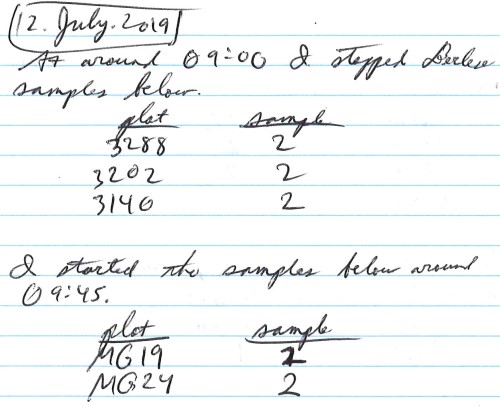 12. July. 2019
At around 09:00 I stopped Berlese
samples below.
plot sample
3288 2
3202 2
3140 2
I started the samples below around
09:45.
plot sample
MG19 2
MG24 2